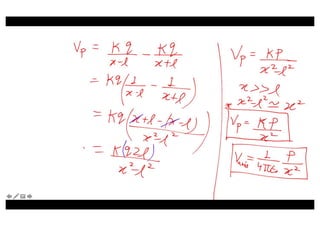 V_P = Kq/(x-l) - Kq/(x+l)
= Kq(1/(x-l) - 1/(x+l))
= Kq((x+l-(x-l))/(x²-l²))
= K(q2l)/(x²-l²)
V_P = KP/(x²-l²)
x>>l
x²-l² ≃ x²
V_P = KP/x²
V_axis = 1/(4πε₀) P/x²